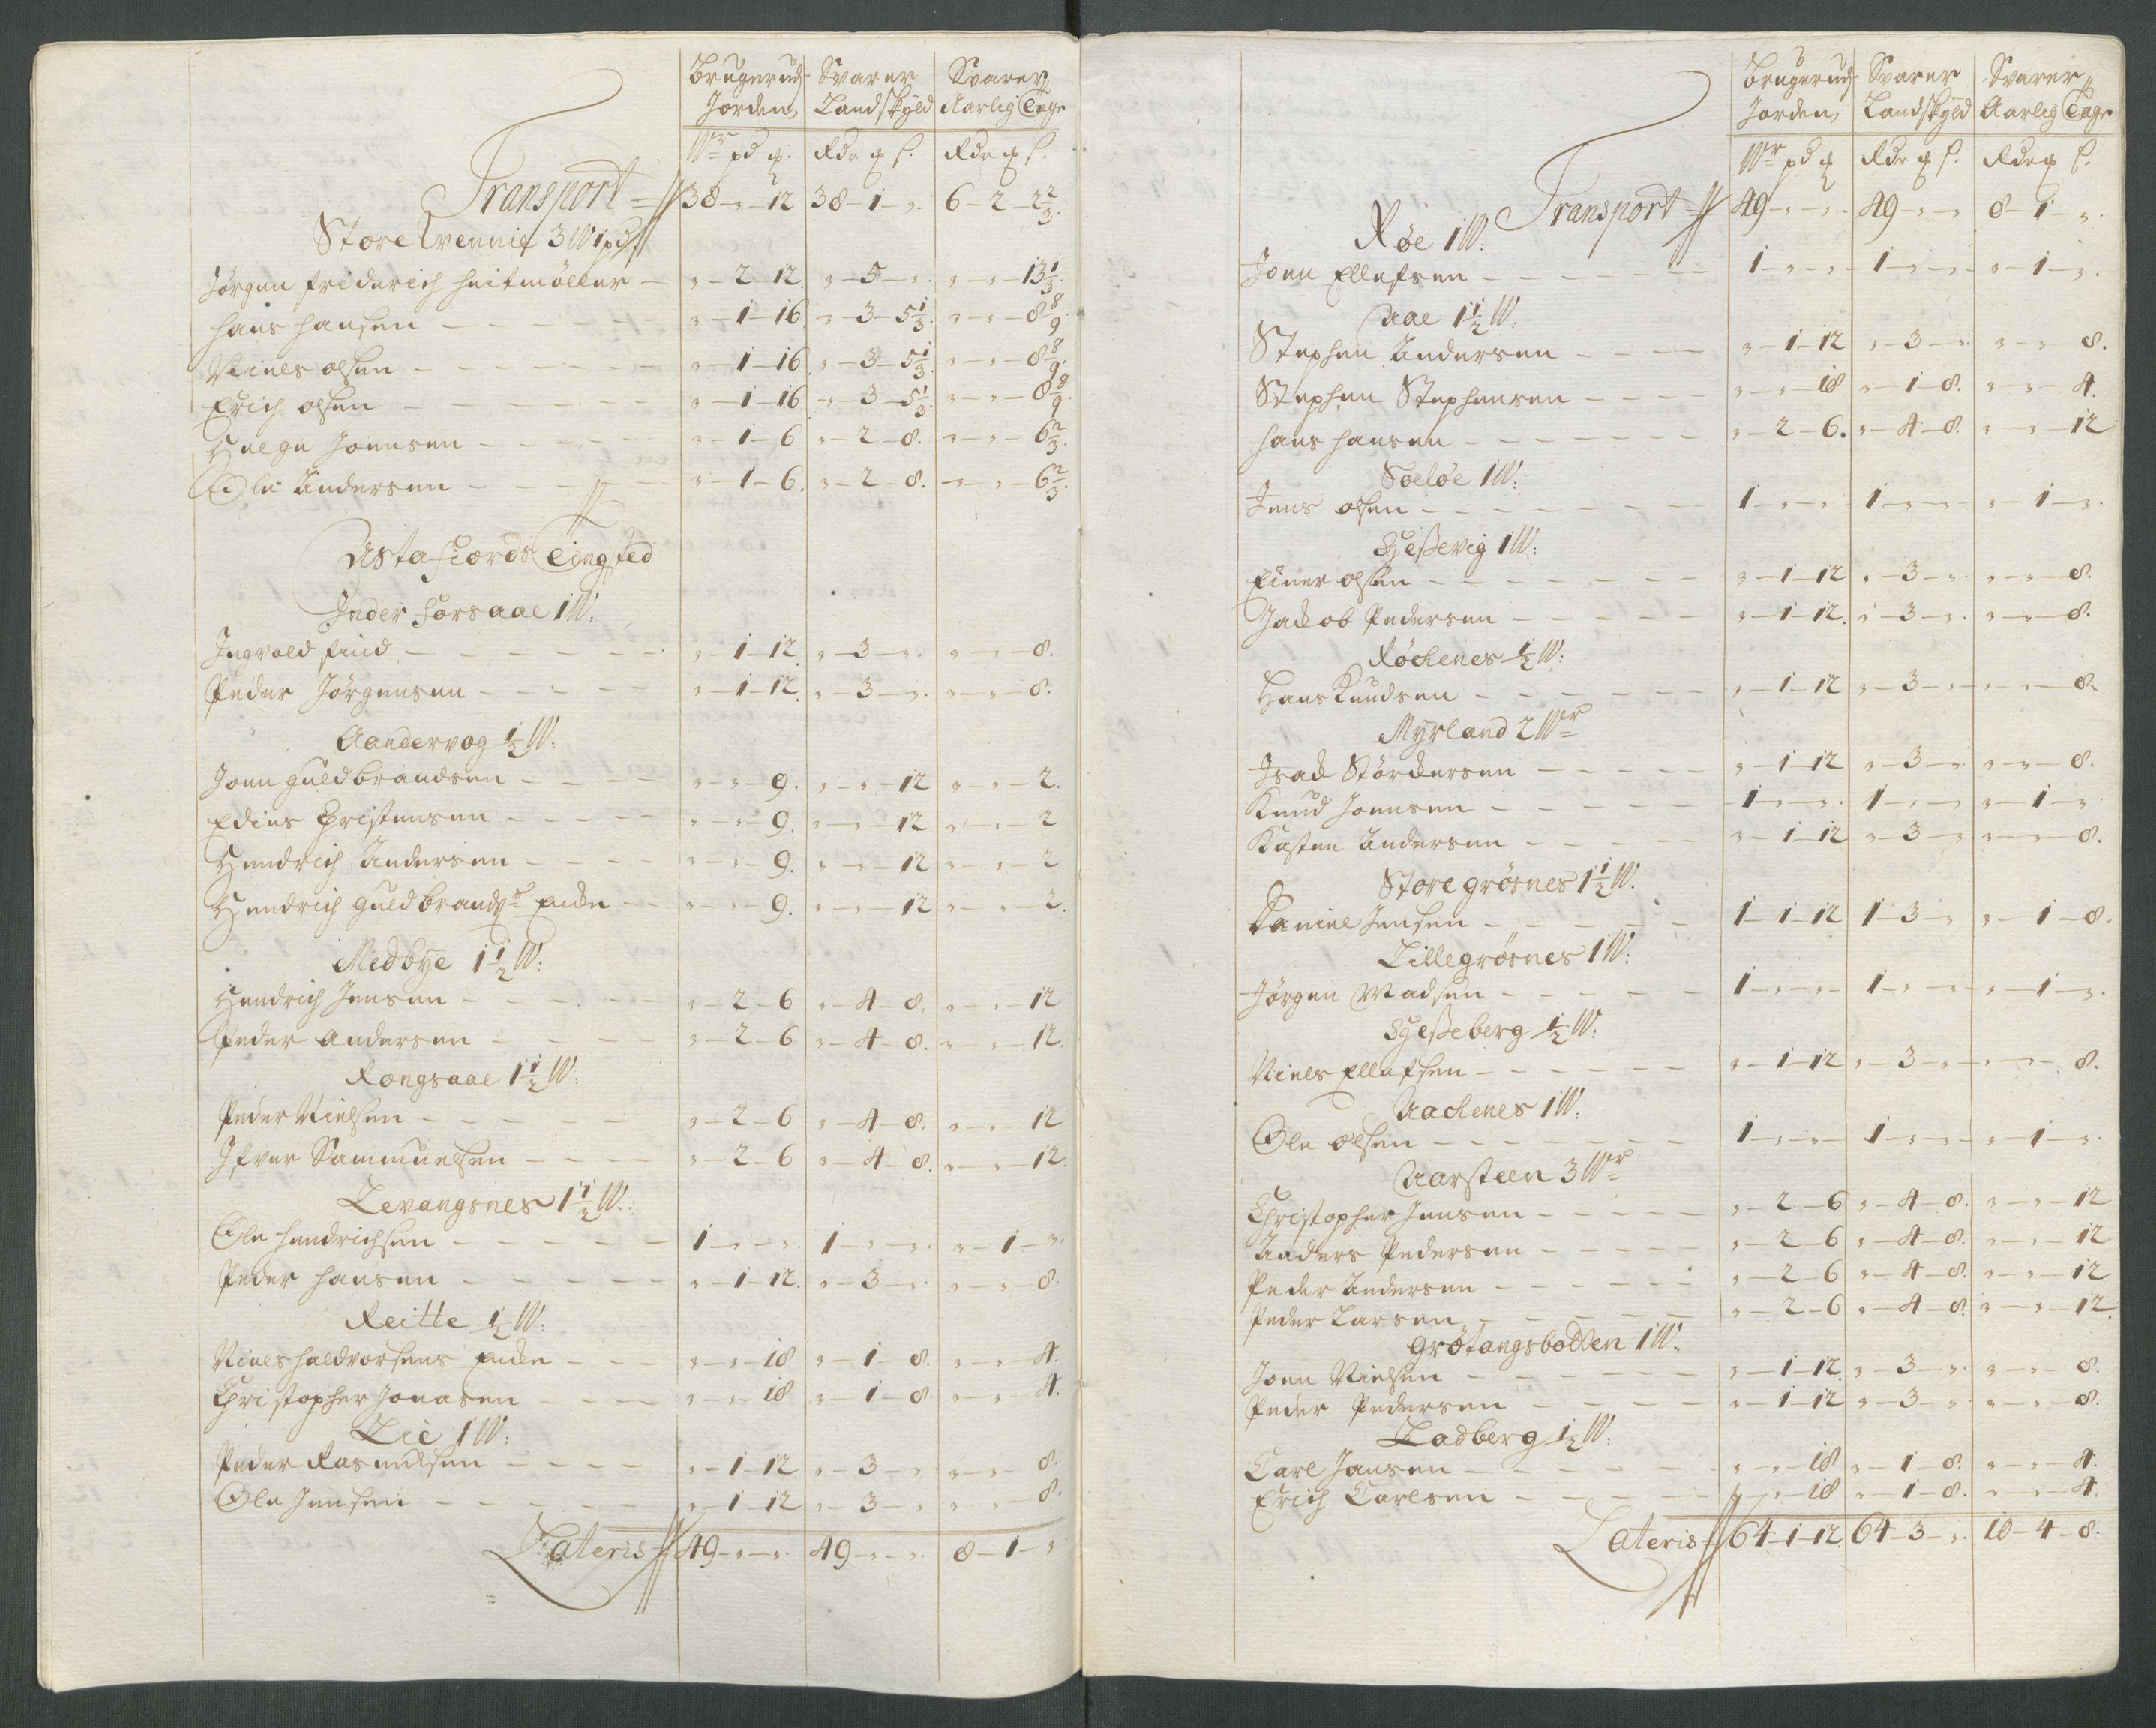 Brugerud Svarer Svarer
Jorden Landskyld Aarlig Tage
Wr pd ꝶ. Rdr ꝶ ſ. Rdr ꝶ ſ.
Transport 38 - „ - 12 38 - 1 - „. 6 - 2 - 2 2/3.
Store Qvennie 3 W 1 pd
Jørgen Friderich Heitmøller - „ - 2 - 12. „ - 5 - „. „ - „ - 13 1/3.
Hans Hansen - „ - 1 - 16. „ - 3 - 5 1/3. „ - „ - 8 8/9.
Niels Olsen - „ - 1 - 16. „ - 3 - 5 1/3. „ - „ - 8 8/9.
Erich Olsen - „ - 1 - 16. „ - 3 - 5 1/3. „ - „ - 8 8/9.
Helge Joensen - „ - 1 - 6 „ - 2 - 8. „ - „ - 6 2/3.
Ole Andersen - „ - 1 - 6. „ - 2 - 8. „ - „ - 6 2/3.
Astafiords Tingsted
Inder Forsaae 1 W:
Ingvold Find - „ - 1 - 12. „ - 3 - „. „ - „ - 8.
Peder Jørgensen - „ - 1 - 12. „ - 3 - „. „ - „ - 8.
Aandervog 1/2 W:
Joen Guldbrandsen - „ - „ - 9. „ - „ - 12 „ - „ - 2.
Edies Christensen - „ - „ - 9. „ - „ - 12 „ - „ - 2
Hendrich Andersen - „ - „ - 9. „ - „ - 12 „ - „ - 2
Hendrich Guldbrands: Encke - „ - „ - 9. „ - „ - 12 „ - „ - 2.
Medbye 1 1/2 W:
Hendrich Jensen - „ - 2 - 6 „ - 4 - 8. „ - „ - 12
Peder Andersen - „ - 2 - 6 „ - 4 - 8. „ - „ - 12.
Rongsaae 1 1/2 W:
Peder Nielsen - „ - 2 - 6 „ - 4 - 8. „ - „ - 12
Ifver Sammuelsen - „ - 2 - 6 „ - 4 - 8. „ - „ - 12.
Levangsnes 1 1/2 W:
Ole Hendrichsen - 1 - „ - „. 1 - „ - „. „ - 1 - „.
Peder Hansen - „ - 1 - 12. „ - 3 - „. „ - „ - 8.
Reitte 1/2 W:
Niels Haldvorsens Encke - „ - „ - 18 „ - 1 - 8. „ - „ - 4.
Christopher Jonasen - „ - „ - 18 „ - 1 - 8. „ - „ - 4.
Lie 1 W:
Peder Rasmusen - „ - 1 - 12 „ - 3 - „ „ - „ 8.
Ole Jensen - „ - 1 - 12 „ - 3 - „ „ - „ 8.
Lateris 49 - „ - „. 49 - „ - „. 8 - 1 - „
Brugerud Svarer Svarer
Jorden Landskyld Aarlig Tage
Wr pd ꝶ Rdr ꝶ ſ. Rdr ꝶ ſ.
Transport 49 - „ - „. 49 - „ - „ 8 - 1 - „.
Røe 1 W:
Joen Ellefsen - 1 - „ - „ 1 - „ - „ „ - 1 - „.
Aae 1 1/2 W:
Stephen Andersen - „ - 1 - 12 „ - 3 - „. „ - „ 8.
Stephen Stephensen - „ - „ 18 „ - 1 - 8. „ - „ - 4.
Hans Hansen - „ - 2 - 6. „ - 4 - 8. „ - „ - 12
Soeløe 1 W:
Jens Olsen - 1 - „ - „. 1 - „ - „ „ - 1 - „.
Hessevig 1 W:
Einer Olsen - „ - 1 - 12 „ - 3 - „. „ - „ - 8.
Jackob Pedersen - „ - 1 - 12. „ - 3 - „. „ - „ - 8.
Røchenes 1/2 W:
Hans Knudsen - „ - 1 - 12 „ - 3 - „ „ - „ - 8.
Myrland 2 Wr
Isack Størckersen - „ - 1 - 12 „ - 3 - „. „ - „ - 8.
Knud Joensen - 1 - „ - „. 1 - „ - „ „ - 1 - „
Kasten Andersen - „ - 1 - 12 „ - 3 - „ „ - „ - 8.
Store grøsnes 1 1/2 W.
Daniel Jensen - 1 - 1 - 12 1 - 3 - „ „ - 1 - 8.
Lille grøsnes 1 W:
Jørgen Madsen - 1 - „ - „. 1 - „ - „ „ - 1 - „.
Hesseberg 1/2 W:
Niels Ellefsen - „ - 1 - 12 „ - 3 - „ „ - „ - 8.
Aachenes 1 W:
Ole Olsen - 1 - „ - „ 1 - „ - „ „ - 1 - „.
Aarsteen 3 Wr
Christopher Jensen - „ - 2 - 6 „ - 4 - 8. „ - „ - 12
Anders Pedersen - „ - 2 - 6 „ - 4 - 8. „ - „ - 12
Peder Andersen - „ - 2 - 6 „ - 4 - 8. „ - „ - 12
Peder Larsen - „ - 2 - 6 „ - 4 - 8. „ - „ - 12.
Grøtangsbotten 1 W.
Joen Nielsen - „ - 1 - 12. „ - 3 - „. „ - „ 8.
Peder Pedersen - „ - 1 - 12 „ - 3 - „ „ - „ - 8.
Ladberg 1/2 W:
Carl Jansen - „ - „ - 18 „ - 1 - 8. „ - „ - 4.
Erich Carlsen - „ - „ - 18 „ - 1 - 8. „ - „ - 4.
Lateris 64 - 1 - 12. 64 - 3 - „. 10 - 4 - 8.